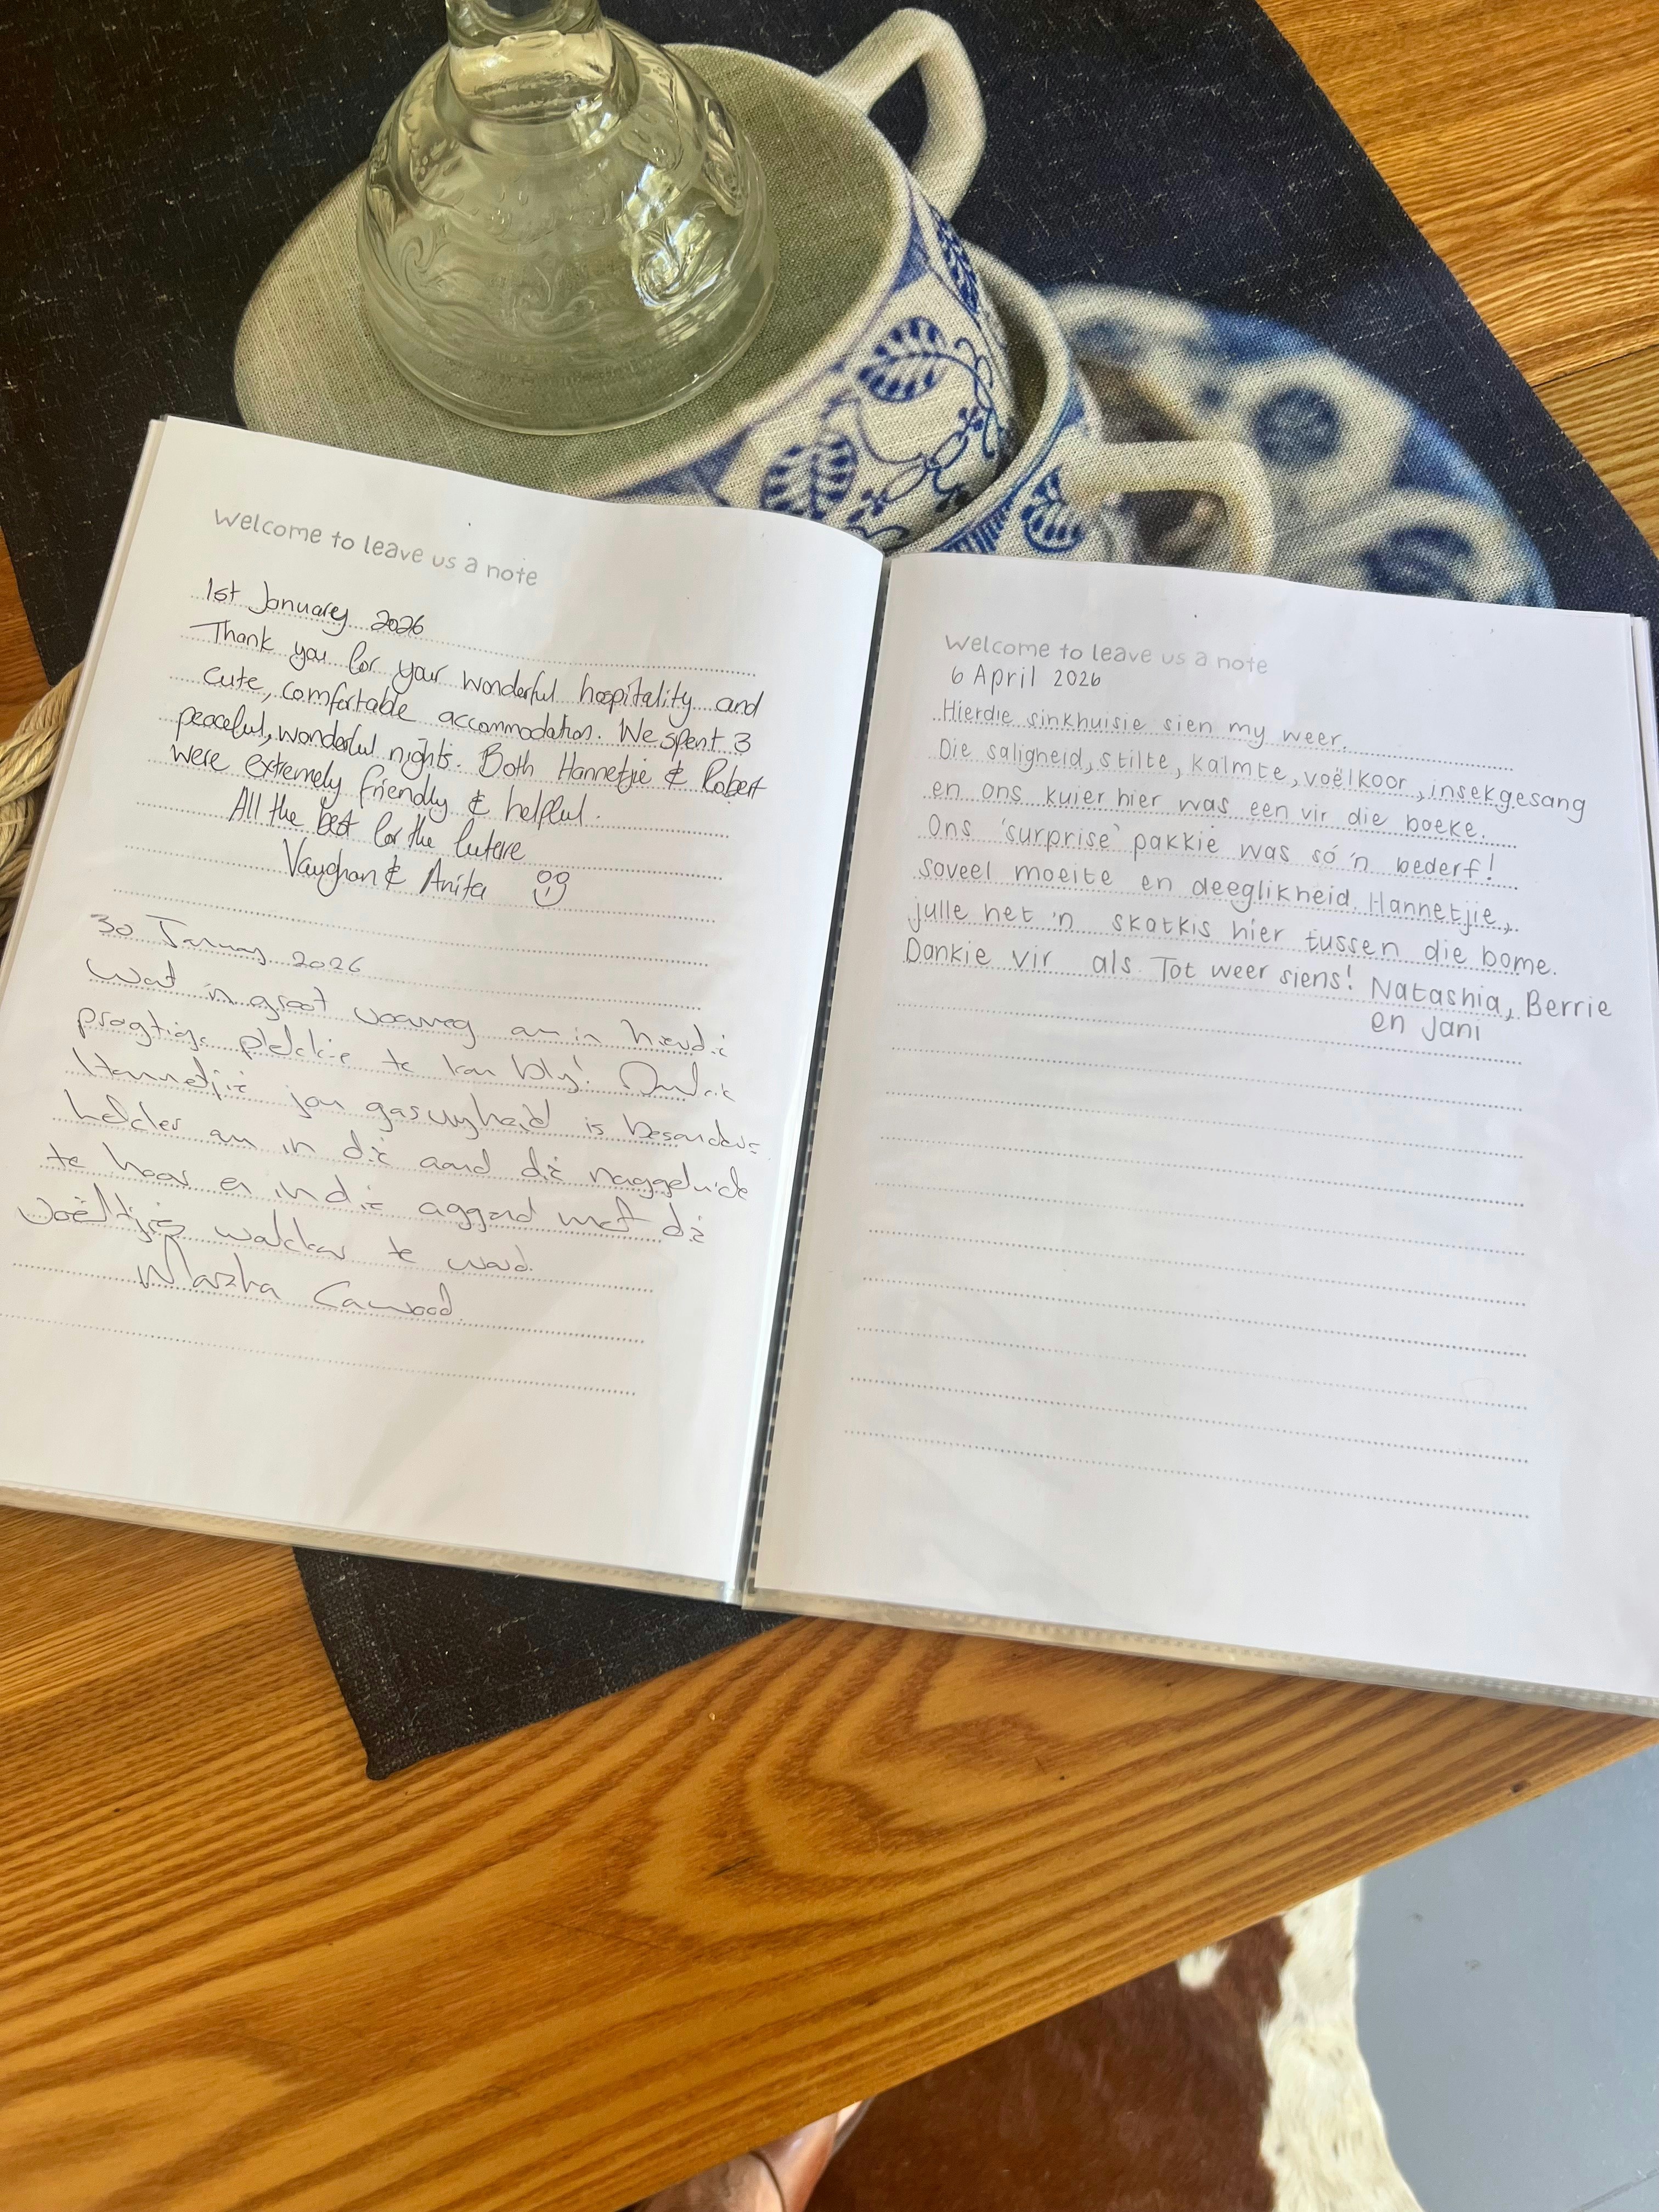 Welcome to leave us a note
1st January 2026
Thank you for your wonderful hospitality and
cute, comfortable accommodation. We spent 3
peaceful, wonderful nights. Both Hannetjie & Robert
were extremely friendly & helpful.
All the best for the future
Vaughan & Anita
30 January 2026
Wat 'n groot voorreg om in hierdie
pragtige plekkie te kan bly! Dankie
Hannetjie jou gasvryheid is besonders
Lekker om in die aand die naggeluide
te hoor en in die oggend met die
voëltjies wakker te word.
Cawood
Welcome to leave us a note
6 April 2026
Hierdie sinkhuisie sien my weer.
Die saligheid, stilte, kalmte, voëlkoor, insekgesang
en ons kuier hier was een vir die boeke.
Ons 'surprise' pakkie was só 'n bederf!
Soveel moeite en deeglikheid. Hannetjie,
julle het 'n skatkis hier tussen die bome.
Dankie vir als. Tot weer siens! Natashia, Berrie
en Jani